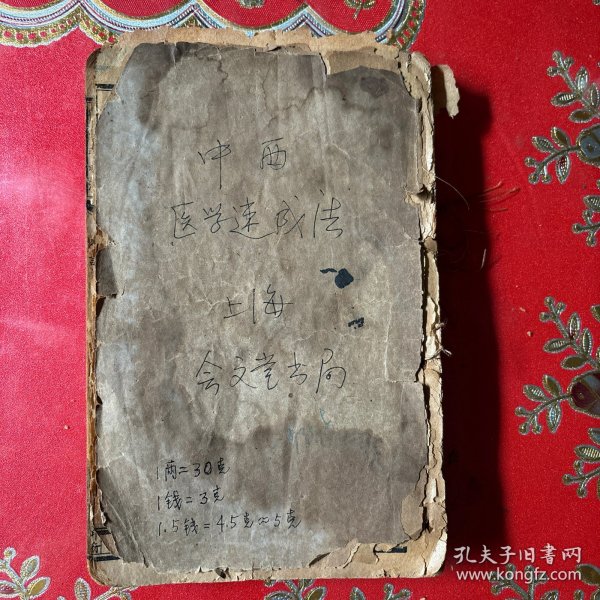 中西
医学速成法
上海
会文堂书局
1两=30克
1钱=3克
1.5钱=4.5克≈5克
孔夫子旧书网
www.kongfz.com